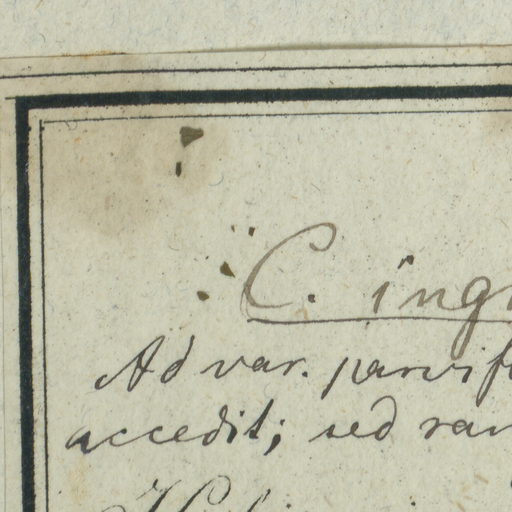 C. ing
Ad var. parvif
accedit; sed ram